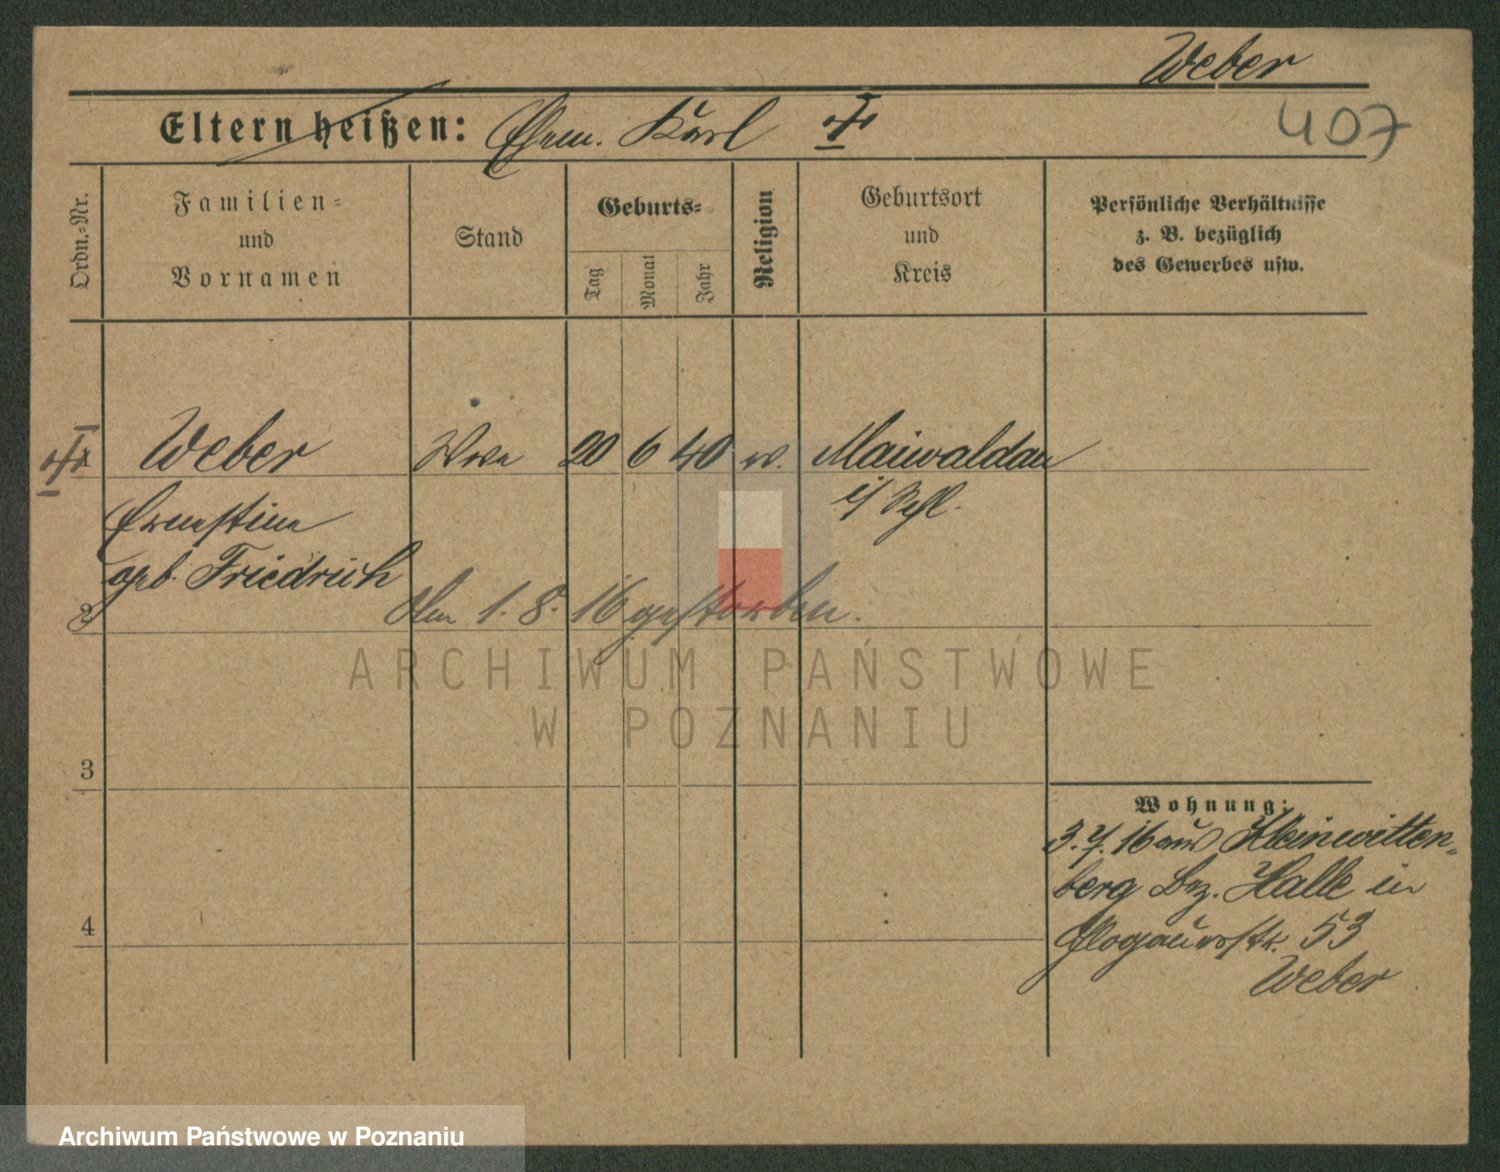 Weber
407
Eltern heißen: Ehem. Karl
Ordn.-Nr.
Familien-
und
Vornamen
Stand
Geburts-
Tag
Monat
Jahr
Religion
Geburtsort
und
Kreis
Persönliche Verhältnisse
z. B. bezüglich
des Gewerbes usw.
Weber Wwe 20 6 40 ev. Maiwaldau
Ernestine i/ Schl.
geb. Friedrich
2 Am 1. 8. 16 gestorben.
ARCHIWUM PAŃSTWOWE
W POZNANIU
3
Wohnung:
3. 7. 16 aus Kleinwitten-
berg Bez. Halle in
4
Glogauerstr. 53
Weber
Archiwum Państwowe w Poznaniu